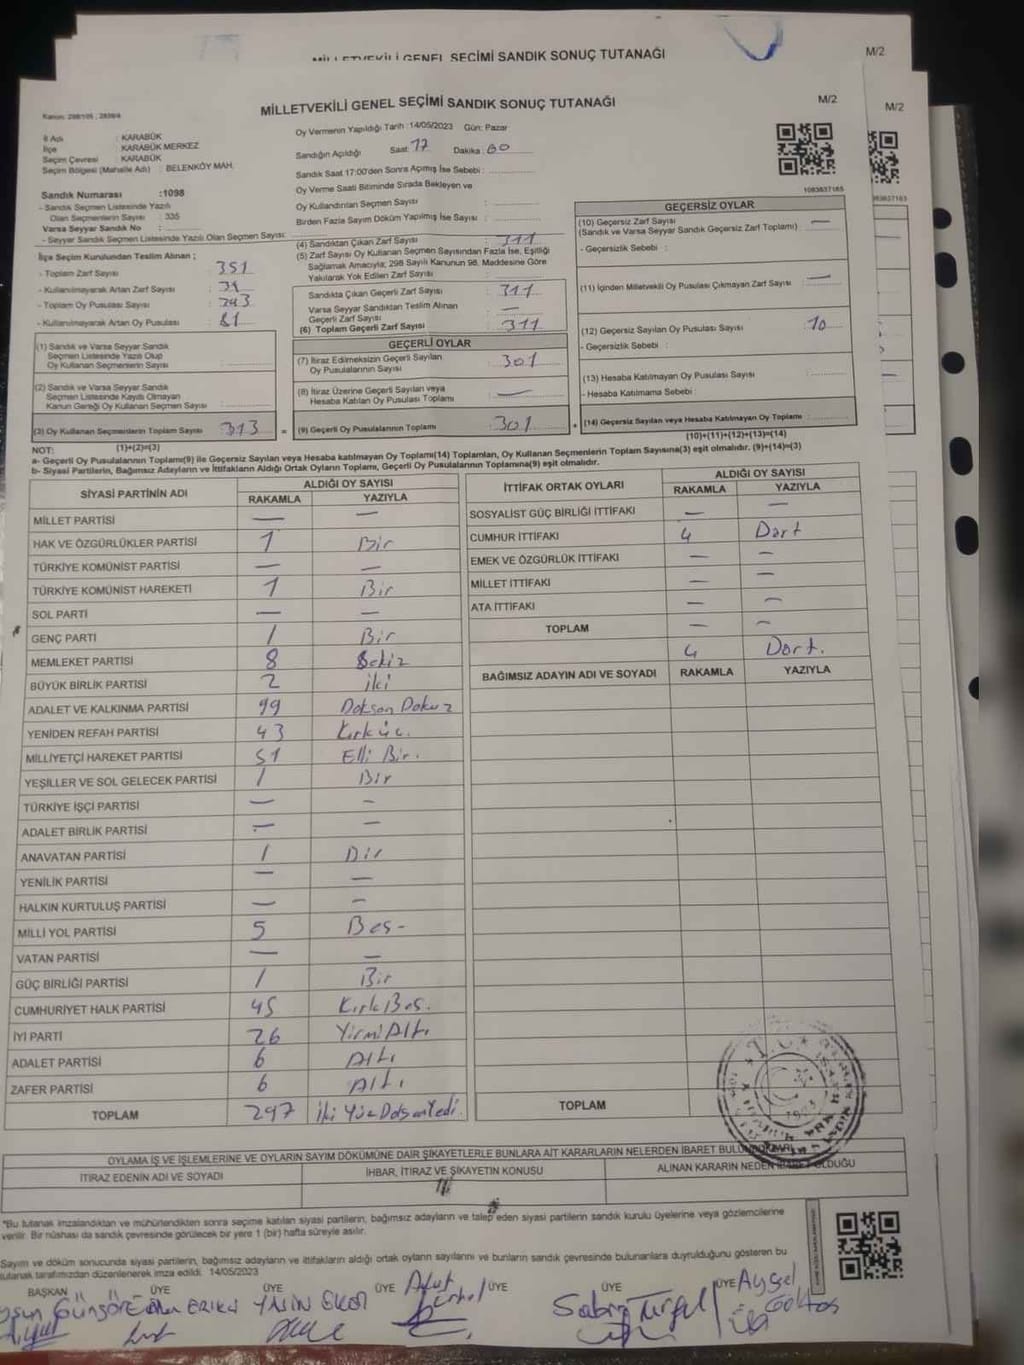 MİLLETVEKİLİ GENEL SEÇİMİ SANDIK SONUÇ TUTANAĞI
M/2
MİLLETVEKİLİ GENEL SEÇİMİ SANDIK SONUÇ TUTANAĞI
M/2
M/2
Kanun: 298/105 ; 2839/4
İl Adı : KARABÜK
İlçe : KARABÜK MERKEZ
Seçim Çevresi : KARABÜK
Seçim Bölgesi (Mahalle Adı) : BELENKÖY MAH.
Sandık Numarası :1098
- Sandık Seçmen Listesinde Yazılı
Olan Seçmenlerin Sayısı : 335
Varsa Seyyar Sandık No :
- Seyyar Sandık Seçmen Listesinde Yazılı Olan Seçmen Sayısı:
İlçe Seçim Kurulundan Teslim Alınan ;
- Toplam Zarf Sayısı : 351
- Kullanılmayarak Artan Zarf Sayısı :
- Toplam Oy Pusulası Sayısı :
- Kullanılmayarak Artan Oy Pusulası : 81
(1) Sandık ve Varsa Seyyar Sandık
Seçmen Listesinde Yazılı Olup
Oy Kullanan Seçmenlerin Sayısı
(2) Sandık ve Varsa Seyyar Sandık
Seçmen Listesinde Kayıtlı Olmayan
Kanun Gereği Oy Kullanan Seçmen Sayısı
(3) Oy Kullanan Seçmenlerin Toplam Sayısı 313
(1)+(2)=(3)
Oy Vermenin Yapıldığı Tarih :14/05/2023 Gün: Pazar
Sandığın Açıldığı Saat: 17 Dakika: 60
Sandık Saat 17:00'den Sonra Açılmış İse Sebebi :
Oy Verme Saati Bitiminde Sırada Bekleyen ve
Oy Kullandırılan Seçmen Sayısı :
Birden Fazla Sayım Döküm Yapılmış İse Sayısı :
(4) Sandıktan Çıkan Zarf Sayısı : 311
(5) Zarf Sayısı Oy Kullanan Seçmen Sayısından Fazla İse, Eşitliği
Sağlamak Amacıyla; 298 Sayılı Kanunun 98. Maddesine Göre
Yakılarak Yok Edilen Zarf Sayısı
Sandıkta Çıkan Geçerli Zarf Sayısı : 311
Varsa Seyyar Sandıktan Teslim Alınan
Geçerli Zarf Sayısı : —
(6) Toplam Geçerli Zarf Sayısı : 311
GEÇERLİ OYLAR
(7) İtiraz Edilmeksizin Geçerli Sayılan
Oy Pusulalarının Sayısı : 301
(8) İtiraz Üzerine Geçerli Sayılan veya
Hesaba Katılan Oy Pusulası Toplamı : —
(9) Geçerli Oy Pusulalarının Toplamı : 301
1083637165
GEÇERSİZ OYLAR
(10) Geçersiz Zarf Sayısı —
(Sandık ve Varsa Seyyar Sandık Geçersiz Zarf Toplamı)
- Geçersizlik Sebebi :
(11) İçinden Milletvekili Oy Pusulası Çıkmayan Zarf Sayısı : —
(12) Geçersiz Sayılan Oy Pusulası Sayısı : 10
- Geçersizlik Sebebi :
(13) Hesaba Katılmayan Oy Pusulası Sayısı
- Hesaba Katılmama Sebebi :
(14) Geçersiz Sayılan veya Hesaba Katılmayan Oy Toplamı :
(10)+(11)+(12)+(13)=(14)
NOT:
a- Geçerli Oy Pusulalarının Toplamı(9) ile Geçersiz Sayılan veya hesaba katılmayan Oy Toplamı(14) Toplamları, Oy Kullanan Seçmenlerin Toplam Sayısına(3) eşit olmalıdır. (9)+(14)=(3)
b- Siyasi Partilerin, Bağımsız Adayların ve İttifakların Aldığı Ortak Oyların Toplamı, Geçerli Oy Pusulalarının Toplamına(9) eşit olmalıdır.
SİYASİ PARTİNİN ADI ALDIĞI OY SAYISI
RAKAMLA YAZIYLA
MİLLET PARTİSİ — —
HAK VE ÖZGÜRLÜKLER PARTİSİ 1 Bir
TÜRKİYE KOMÜNİST PARTİSİ — —
TÜRKİYE KOMÜNİST HAREKETİ 1 Bir
SOL PARTİ — —
GENÇ PARTİ 1 Bir
MEMLEKET PARTİSİ 8 Sekiz
BÜYÜK BİRLİK PARTİSİ 2 iki
ADALET VE KALKINMA PARTİSİ 99 Doksan Dokuz
YENİDEN REFAH PARTİSİ 43 Kırk üç.
MİLLİYETÇİ HAREKET PARTİSİ 51 Elli Bir.
YEŞİLLER VE SOL GELECEK PARTİSİ 1 Bir
TÜRKİYE İŞÇİ PARTİSİ — —
ADALET BİRLİK PARTİSİ — —
ANAVATAN PARTİSİ 1 Bir
YENİLİK PARTİSİ — —
HALKIN KURTULUŞ PARTİSİ — —
MİLLİ YOL PARTİSİ 5 Beş-
VATAN PARTİSİ — —
GÜÇ BİRLİĞİ PARTİSİ 1 Bir
CUMHURİYET HALK PARTİSİ 45 Kırk Beş.
İYİ PARTİ 26 Yirmi Altı
ADALET PARTİSİ 6 Altı
ZAFER PARTİSİ 6 Altı
TOPLAM 297
İTTİFAK ORTAK OYLARI ALDIĞI OY SAYISI
RAKAMLA YAZIYLA
SOSYALİST GÜÇ BİRLİĞİ İTTİFAKI — —
CUMHUR İTTİFAKI 4 Dört
EMEK VE ÖZGÜRLÜK İTTİFAKI — —
MİLLET İTTİFAKI — —
ATA İTTİFAKI — —
TOPLAM — —
4 Dört.
BAĞIMSIZ ADAYIN ADI VE SOYADI RAKAMLA YAZIYLA
TOPLAM
OYLAMA İŞ VE İŞLEMLERİNE VE OYLARIN SAYIM DÖKÜMÜNE DAİR ŞİKAYETLERLE BUNLARA AİT KARARLARIN NELERDEN İBARET BULUNDUĞU
İTİRAZ EDENİN ADI VE SOYADI İHBAR, İTİRAZ VE ŞİKAYETİN KONUSU ALINAN KARARIN NEDEN İBARET OLDUĞU
*Bu tutanak imzalandıktan ve mühürlendikten sonra seçime katılan siyasi partilerin, bağımsız adayların ve talep eden siyasi partilerin sandık kurulu üyelerine veya gözlemcilerine
verilir. Bir nüshası da sandık çevresinde görülecek bir yere 1 (bir) hafta süreyle asılır.
Sayım ve döküm sonucunda siyasi partilerin, bağımsız adayların ve ittifakların aldığı ortak oyların sayılarını ve bunların sandık çevresinde bulunanlara duyrulduğunu gösteren bu
tutanak tarafımızdan düzenlenerek imza edildi. 14/05/2023
BAŞKAN ÜYE ÜYE ÜYE ÜYE ÜYE ÜYE
YASİN Sabri Turgul Aysel Göktaş